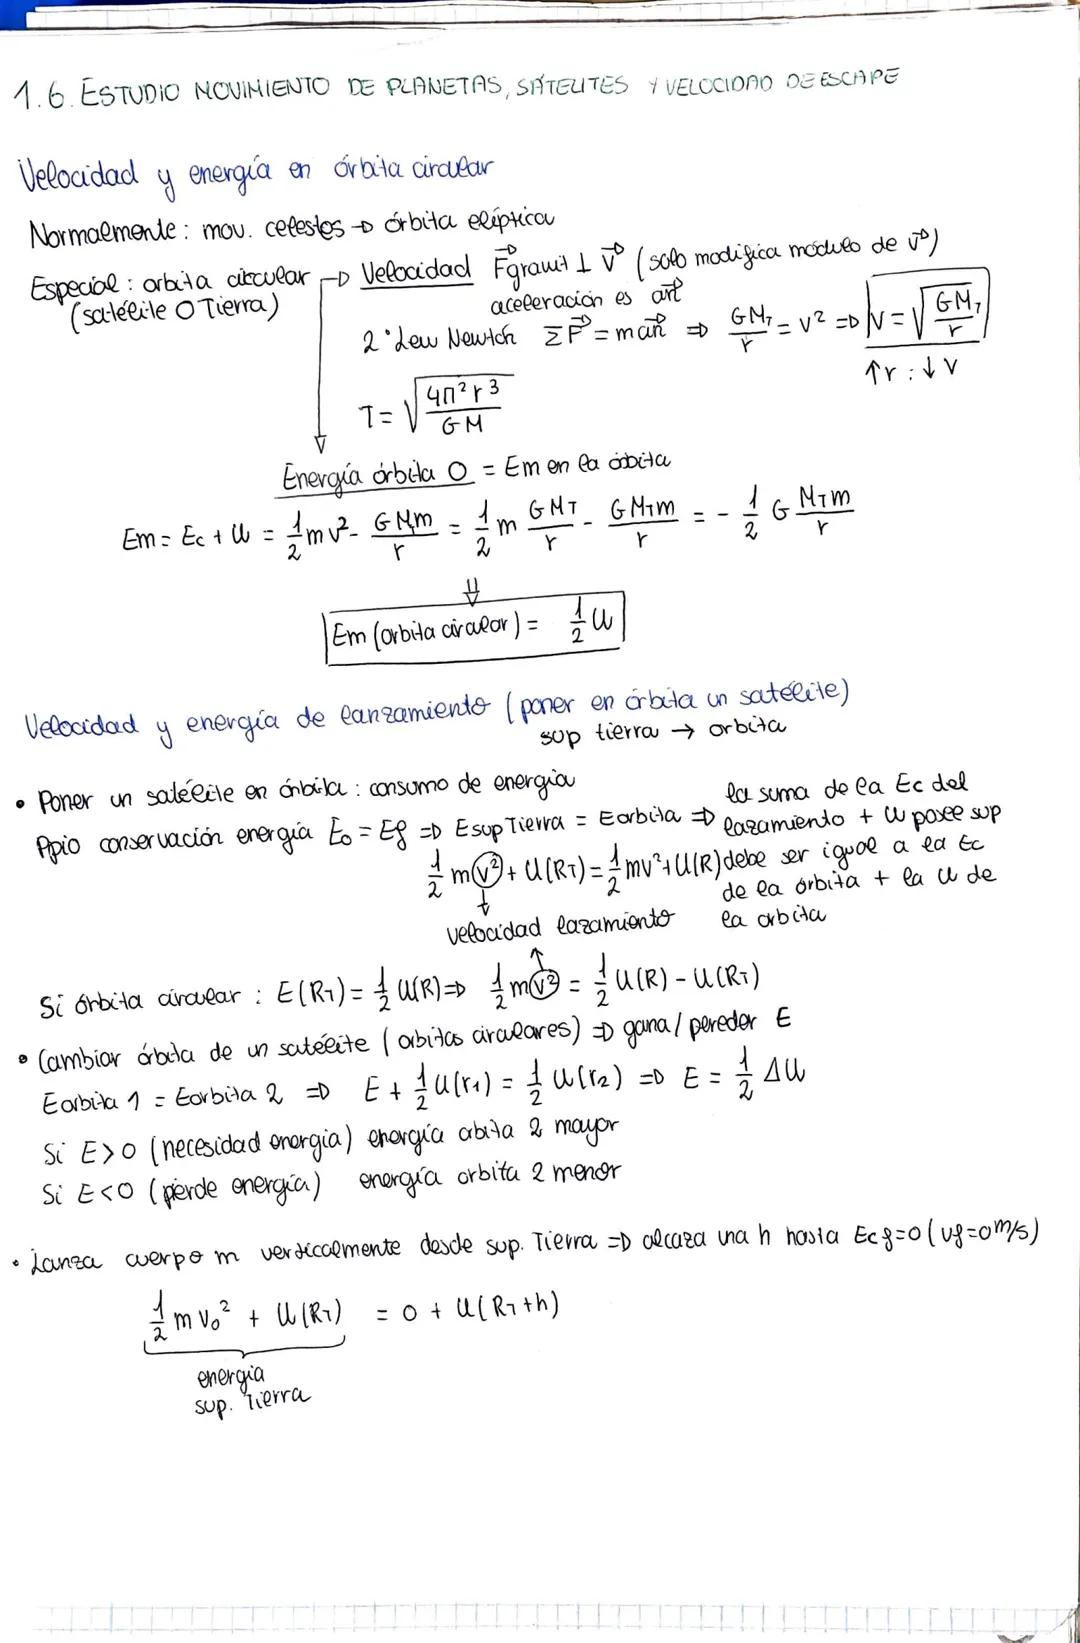 1.6. ESTUDIO MOVIMIENTO DE PLANETAS, SATELITES Y VELOCIDAD DE ESCAPE
Velocidad y energía en órbita circular
Normalmente: mov. celestes → órbita elíptica
Especial: orbita circular → Velocidad F⃗gravit ⊥ v⃗ (solo modifica modulo de v⃗)
(satélite O Tierra)
aceleración es
2ª Ley Newton ΣF⃗ = m an⃗ ⇒ GMT/r = v² ⇒ v = √(GMT/r)
↑r : ↓v
T = √(4π²r³/GM)
Energía órbita O = Em en la órbita
Em = Ec + U = 1/2 mv² - GMTm/r = 1/2 m GMT/r - GMTm/r = - 1/2 G MTm/r
⇓
Em (orbita circular) = 1/2 U
Velocidad y energía de lanzamiento (poner en órbita un satélite)
sup tierra → orbita
• Poner un satélite en órbita: consumo de energía
Ppio conservación energía Eo = Ef ⇒ Esup Tierra = Eorbita ⇒ la suma de la Ec del lazamiento + U posee sup
1/2 m v² + U(RT) = 1/2 mv² + U(R) debe ser igual a la Ec
de la órbita + la U de
velocidad lazamiento la orbita
Si órbita circular: E(RT) = 1/2 U(R) ⇒ 1/2 m v² = 1/2 U(R) - U(RT)
• Cambiar órbita de un satélite (orbitas circulares) ⇒ gana/pereder E
Eorbita 1 = Eorbita 2 ⇒ E + 1/2 U(r1) = 1/2 U(r2) ⇒ E = 1/2 ΔU
Si E>0 (necesidad energia) energía orbita 2 mayor
Si E<0 (pierde energía) energía orbita 2 menor
• Lanza cuerpo m verticalmente desde sup. Tierra ⇒ alcaza una h hasta Ecf=0 (vf=0m/s)
1/2 m vo² + U(RT) = 0 + U(RT+h)
energia
sup. Tierra